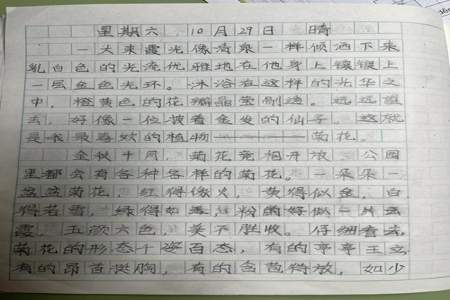 星期六 10月29日 晴
一大束霞光像清泉一样倾洒下来
乳白色的光流优雅地在他身上镶镀上
一层金色光环。沐浴在这样的光华之
中,橙黄色的花瓣晶莹剔透。远远望
去,好像一位披着金发的仙子,这就
是我最喜欢的植物————菊花。
金秋十月,菊花竞相开放,公园
里都会有各种各样的菊花。一朵朵一
盆盆菊花,红得像火,黄得似金,白
得若雪,绿得如,粉的好似一片云
霞,五颜六色,美不胜收。仔细看去,
菊花的形态千姿百态,有的亭亭玉立
有的昂首挺胸,有的含苞待放,如少